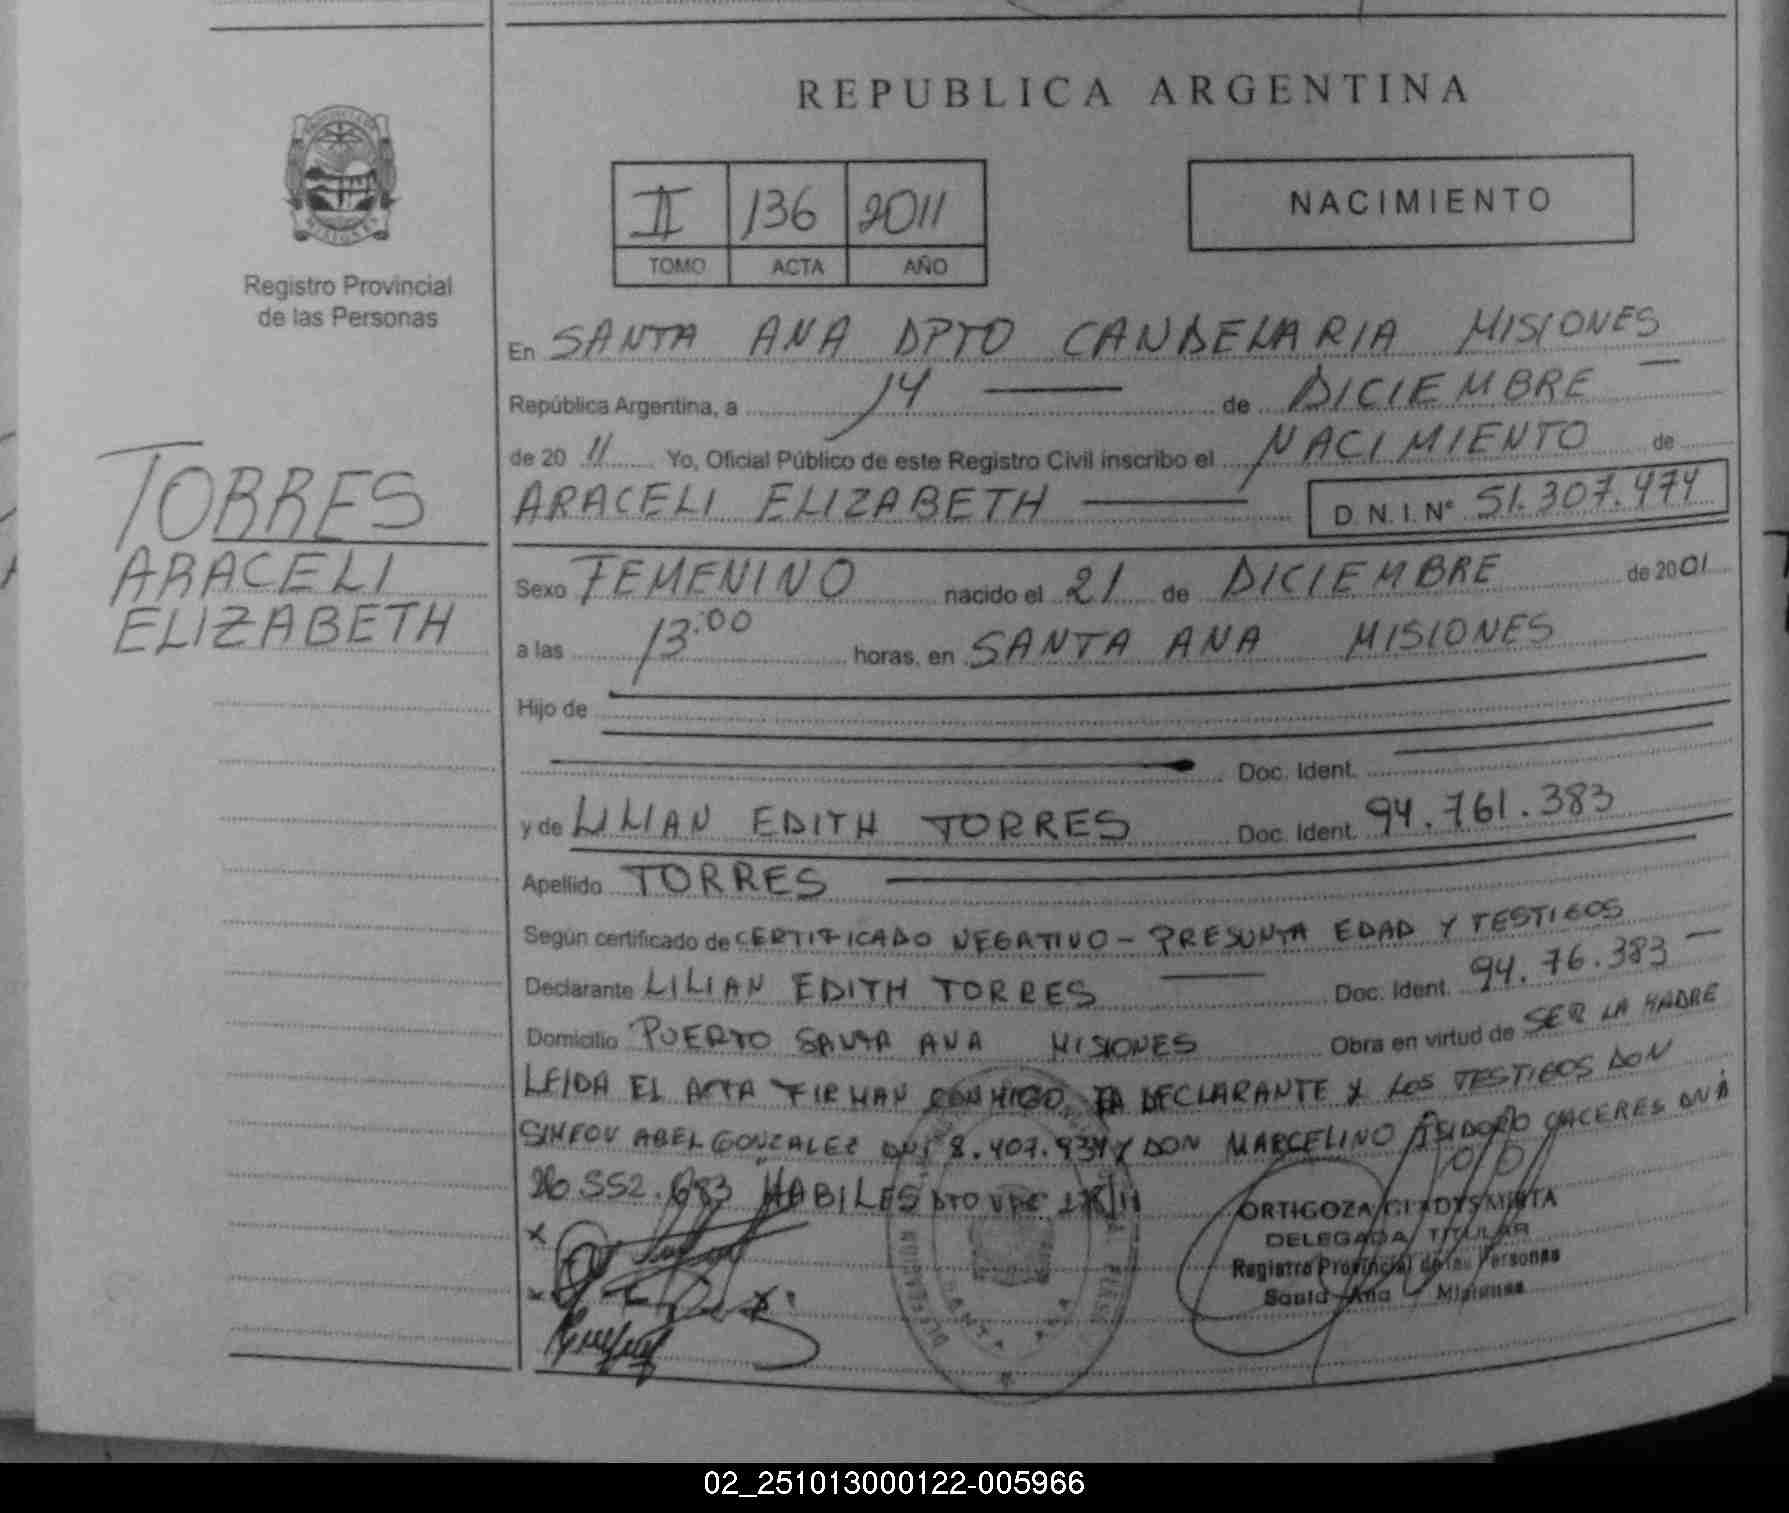 REPUBLICA ARGENTINA
PROVINCIA DE
MISIONES
Registro Provincial
de las Personas
II 136 2011
TOMO ACTA AÑO
NACIMIENTO
En SANTA ANA DPTO CANDELARIA MISIONES
República Argentina, a 14 de DICIEMBRE
de 20 11 Yo, Oficial Público de este Registro Civil inscribo el NACIMIENTO de
ARACELI ELIZABETH D.N.I.Nº 51.307.474
TORRES
ARACELI
ELIZABETH
Sexo FEMENINO nacido el 21 de DICIEMBRE de 2001
a las 13:00 horas, en SANTA ANA MISIONES
Hijo de
Doc. Ident.
y de LILIAN EDITH TORRES Doc. Ident. 94.761.383
Apellido TORRES
Según certificado de CERTIFICADO NEGATIVO - PRESUNTA EDAD Y TESTIGOS
Declarante LILIAN EDITH TORRES Doc. Ident. 94.76.383
Domicilio PUERTO SANTA ANA MISIONES Obra en virtud de SER LA MADRE
LEIDA EL ACTA FIRMAN CONMIGO LA DECLARANTE Y LOS TESTIGOS DON
SIMEON ABEL GONZALEZ DNI 8.407.934 Y DON MARCELINO ISIDORO CACERES DNI
26 552.683 HABILES DTO
ORTIGOZA GLADYS MIRTA
DELEGADA TITULAR
Registro Provincial de las Personas
Santa Ana Misiones
02_251013000122-005966